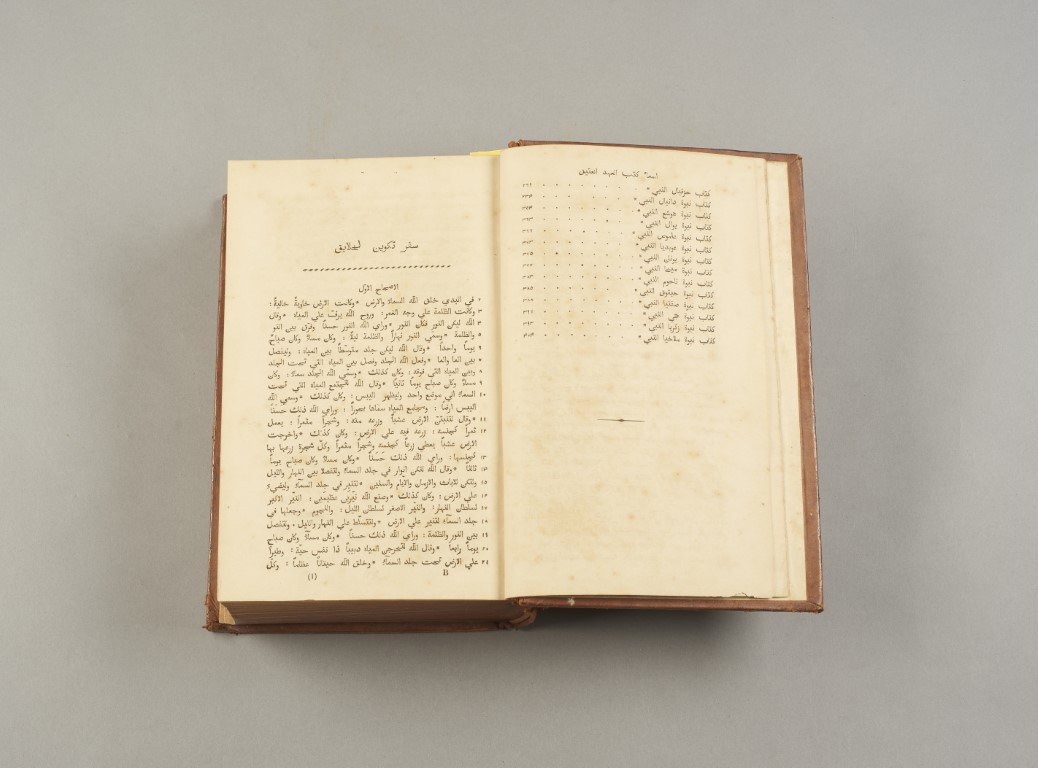 اسماء كتب العهد العتيق
كتاب حزقيال النبي
كتاب نبوة دانيال النبي
كتاب نبوة هوشع النبي
كتاب نبوة يوال النبي
كتاب نبوة عاموس النبي
كتاب نبوة عوبديا النبي
كتاب نبوة يونان النبي
كتاب نبوة ميخا النبي
كتاب نبوة ناحوم النبي
كتاب نبوة حبقوق النبي
كتاب نبوة صفنيا النبي
كتاب نبوة حجي النبي
كتاب نبوة زكريا النبي
كتاب نبوة ملاخيا النبي
سفر تكوين الخلايق
الاصحاح الاول
في البدي خلق الله السماء والارض * وكانت الارض خاوية خالية :
وكانت الظلمة علي وجه الغمر : وروح الله يرف علي المياه * وقال
الله ليكن النور فكان النور * وراي الله النور حسناً وفرق بين النور
والظلمة * وسمي النور نهاراً والظلمة ليلاً : وكان مساء وكان صباح
يوماً واحداً * وقال الله ليكن جلد متوسطاً بين المياه : وليفصل
بين الما والما * وفعل الله الجلد وفصل بين المياه التي تحت الجلد
وبين المياه التي فوقه : وكان كذلك * وسمي الله الجلد سماء : وكان
مساء وكان صباح يوماً ثانياً * وقال الله لتجتمع المياه التي تحت
السماء الي موضع واحد وليظهر اليبس : وكان كذلك * وسمي الله
اليبس ارضاً : ومجتمع المياه سماها بحوراً : وراي الله ذلك حسناً
* وقال لتنبت الارض عشباً وزرعه منه : وشجراً مثمراً : يعمل
ثمراً كجنسه : زرعه فيه علي الارض : وكان كذلك * واخرجت
الارض عشباً يعطي زرعاً كجنسه وشجراً مثمراً وكل شجرة زرعها بها
كجنسها : وراي الله ذلك حسناً * وكان مساء وكان صباح يوماً
ثالثاً * وقال الله لتكن انوار في جلد السماء وتفصل بين النهار والليل
وتكن لايات والازمان والايام والسنين * لتنير في جلد السماء وليضيء
علي الارض : وكان كذلك * وصنع الله نيرين عظيمين : النير الاكبر
لسلطان النهار : والنير الاصغر لسلطان الليل : والنجوم * وجعلها في
جلد السماء لتنير علي الارض * ولتتسلط علي النهار والليل . وتفصل
بين النور والظلمة : وراي الله ذلك حسناً * وكان مساء وكان صباح
يوماً رابعاً * وقال الله لتخرج المياه دبيباً ذا نفس حية : وطيراً
علي الارض تحت جلد السماء * وخلق الله حيتاناً عظاماً : وكل
(١)